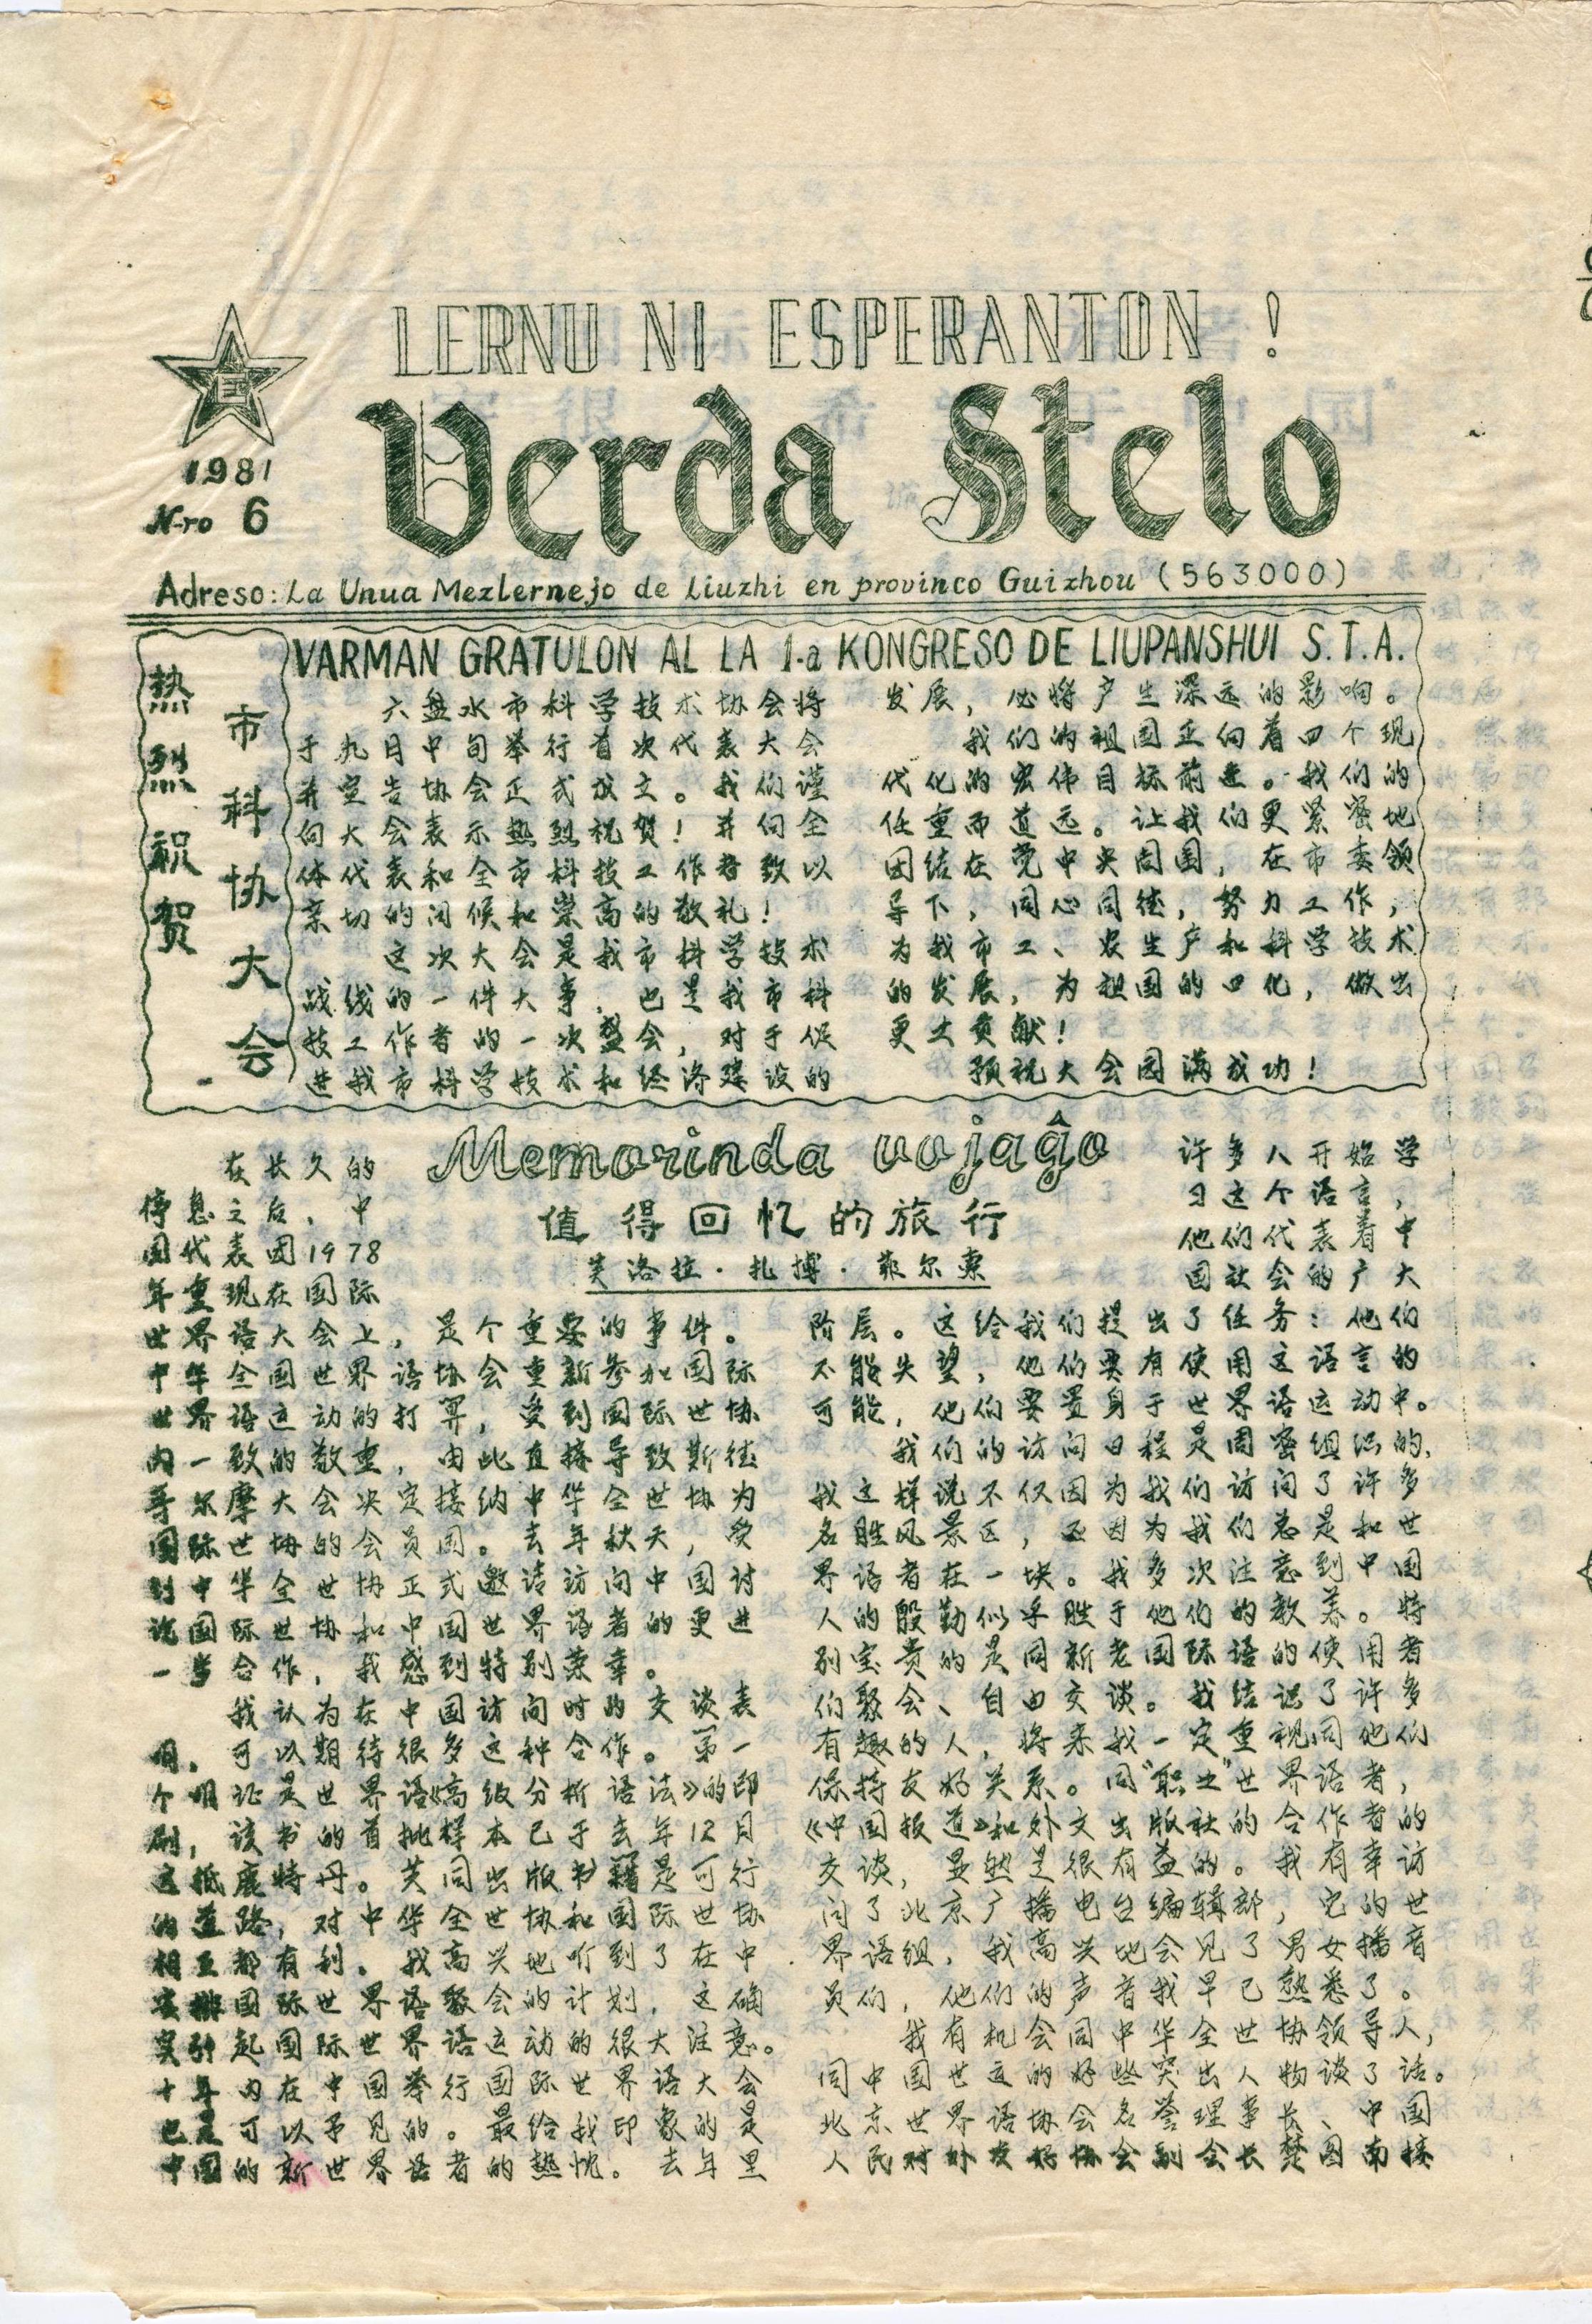 LERNU NI ESPERANTON !
Verda Stelo
1981
N-ro 6
Adreso: La Unua Mezlernejo de Liuzhi en provinco Guizhou (563000)
热烈祝贺
市科协大会
VARMAN GRATULON AL LA 1-a KONGRESO DE LIUPANSHUI S.T.A.
六盘水市科学技术协会将
于九日中旬举行首次代表大会
并宣告协会正式成立。我们谨
向大会表示热烈祝贺！并向全
体代表和全市科技工作者致以
亲切的问候和崇高的敬礼！
这次大会是我市科学技术
战线的一件大事，也是我市科
技工作者的一次盛会，对于促
进我市科学技术和经济建设的
发展，必将产生深远的影响。
我们的祖国正向着四个现
代化的宏伟目标前进。我们的
任重而道远。让我们更紧密地
团结在党中央周围，在市委领
导下，同心同德，努力工作，
为我市工、农生产和科学技术
的发展，为祖国的四化，做出
更大贡献！
预祝大会园满成功！
Memorinda vojaĝo
值得回忆的旅行
芙洛拉·扎博·菲尔索
在长久的
停息之后，中
国代表团1978
年重现在国际
世界语大会上，是个重要的事件。
中华全国世界语协会重新参加国际
世界语运动的打算，受到国际世协
内一致的敬重，由此直接导致斯德
哥尔摩大会决定接纳中华全世协为
国际世协的会员国。去年秋天，受
到中华全世协正式邀请访问中国讨
论国际世协和中国世界语者的更进
一步合作，我感到特别荣幸。
我认为在中国访问时的交谈表
明，可以期待很多这种合作。第一
个明证是世界语《高级分析语法》的印
刷，该书的首批样本已于去年12月
运抵鹿特丹。共同出版书籍是可行
的道路，对中华全世协和国际世协
相互都有利。我高兴地听到了在中
安排国际世界语聚会的计划，这确
实引起国际世界语运动的很大注意。
十年内在中国举行国际世界语大会
已是可以予见的。最给我印象的是
中国的新世界语者的热忱。去年里
许多人开始学
习这个语言，
他们代表着中
国社会的广大
阶层。这给我们提出了任务：他们
不能失望，他们要有使用这语言的
可能，他们要置身于世界语运动中。
我们的访问日程是周密组织的，
我这样说不仅因为我们访问了许多
名胜风景区，还因为我们总是和世
界语者在一块。我多次注意到中国
人的殷勤似乎胜于他们的教养。特
别宝贵的是同新老国际语的使用者
们聚会、自由交谈。我结识了许多
有趣的人，将来我一定重视同他们
保持友好关系。同“职业”世界语者，
《中国报道》和外文出版社的合作者的
交谈，显然是很有益的。我有幸访
问了北京广播电台编辑部，它的世
界语组，我高兴地会见了男女播音
员们，他们的声音我早已熟悉了。
我有机会同中华全世协领导人，
同中国世运的好些突出人物谈了话。
北京世界语协会名誉理事长、中国
人民对外友好协会副会长楚图南接